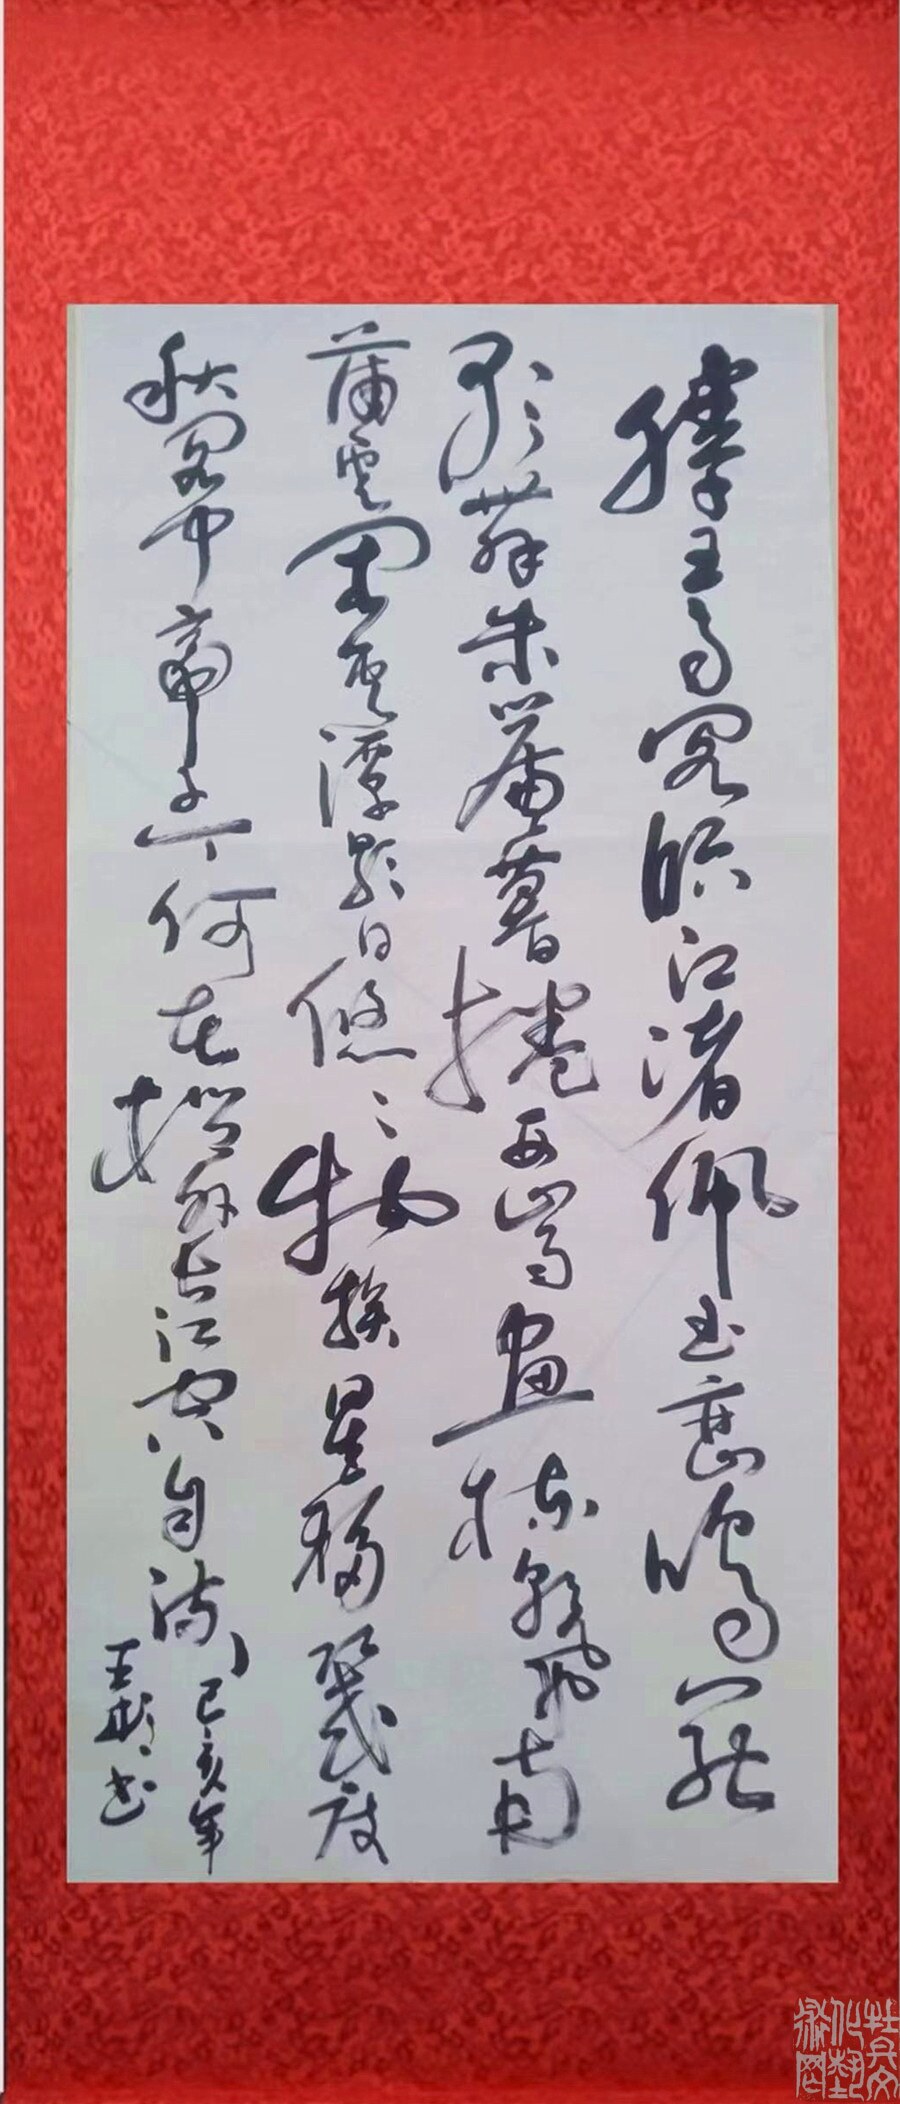 滕王高阁临江渚佩玉鸾鸣罢
歌舞朱帘暮捲西山雨画栋朝飞南
蒲云闲云潭影日悠悠物换星移几度
秋阁中帝子今何在槛外长江空自流 己亥年
王彬书